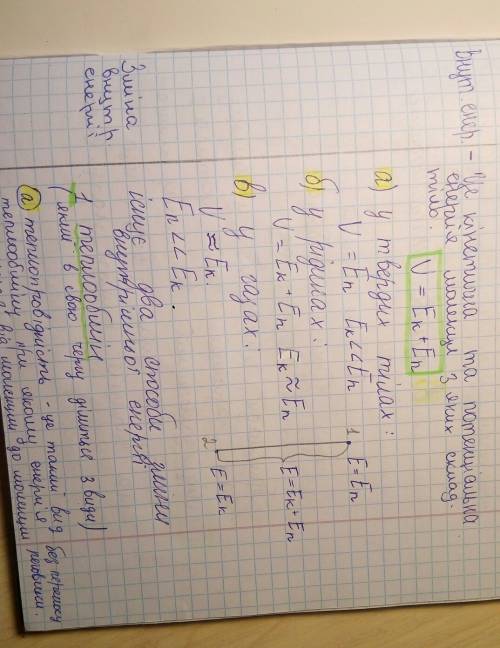 Внут. енер. - це кінетична та потенціальна
енергія молекул з яких склад.
тіло.
U = Eк + Eп
а) у твердих тілах:
U = Eп Eк << Eп
б) у рідинах:
U = Eк + Eп Eк ≈ Eп
в) у газах:
U ≈ Eк.
Eп << Eк.
1 E = Eп
E = Eк + Eп
2 E = Eк
Зміна
внутр
енергії
існує два способи зміни
внутрішньої енергії
1. теплообмін
(який в свою чергу ділиться 3 види)
а) теплопровідність - це такий вид
теплообміну при якому енергія
від молекули до молекули
без переносу
речовини.